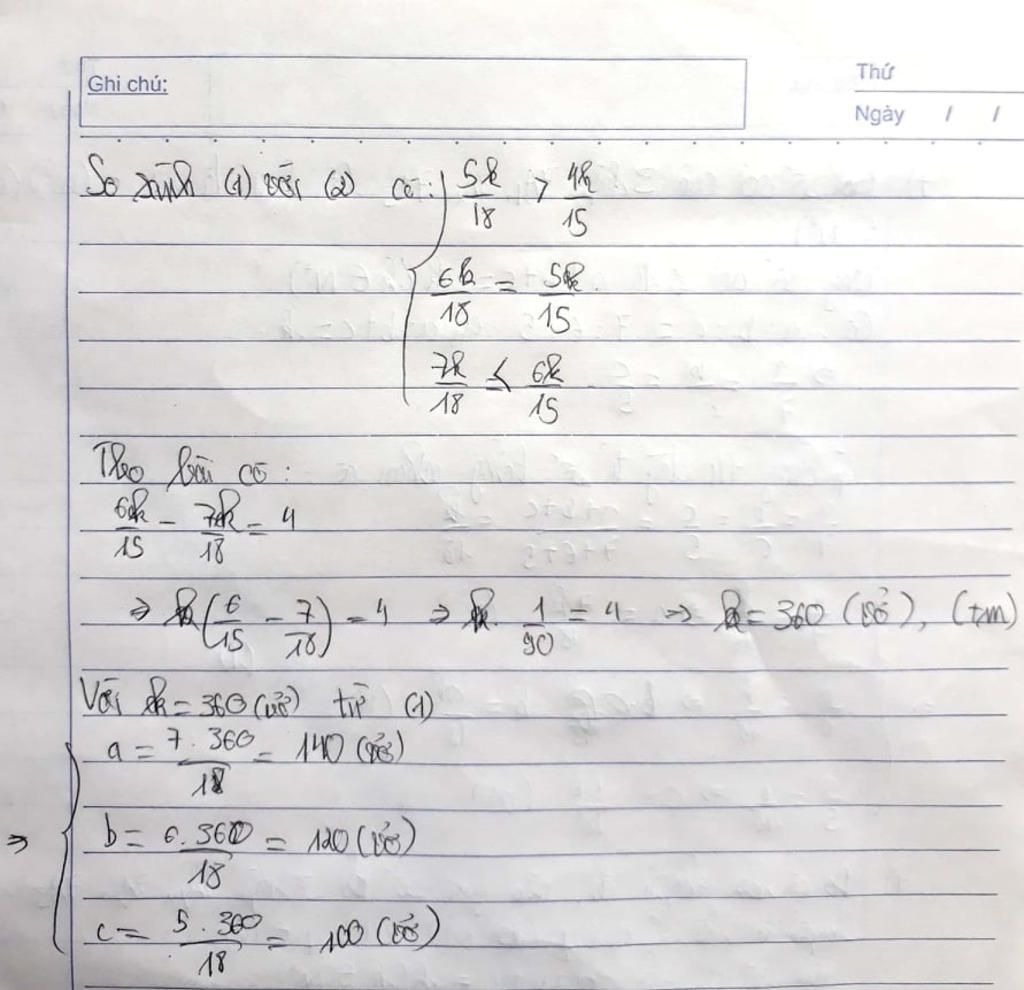 Ghi chú:
Thứ
Ngày / /
So sánh (1) với (2) có: 5k/18 > 4k/15
6k/18 = 5k/15
7k/18 < 6k/15
Theo bài có:
6k/15 - 7k/18 = 4
⇒ k(6/15 - 7/18) = 4 ⇒ k. 1/90 = 4 ⇒ k = 360 (vở), (tm)
Với k = 360 (vở) từ (1)
a = 7.360/18 = 140 (vở)
⇒ b = 6.360/18 = 120 (vở)
c = 5.360/18 = 100 (vở)